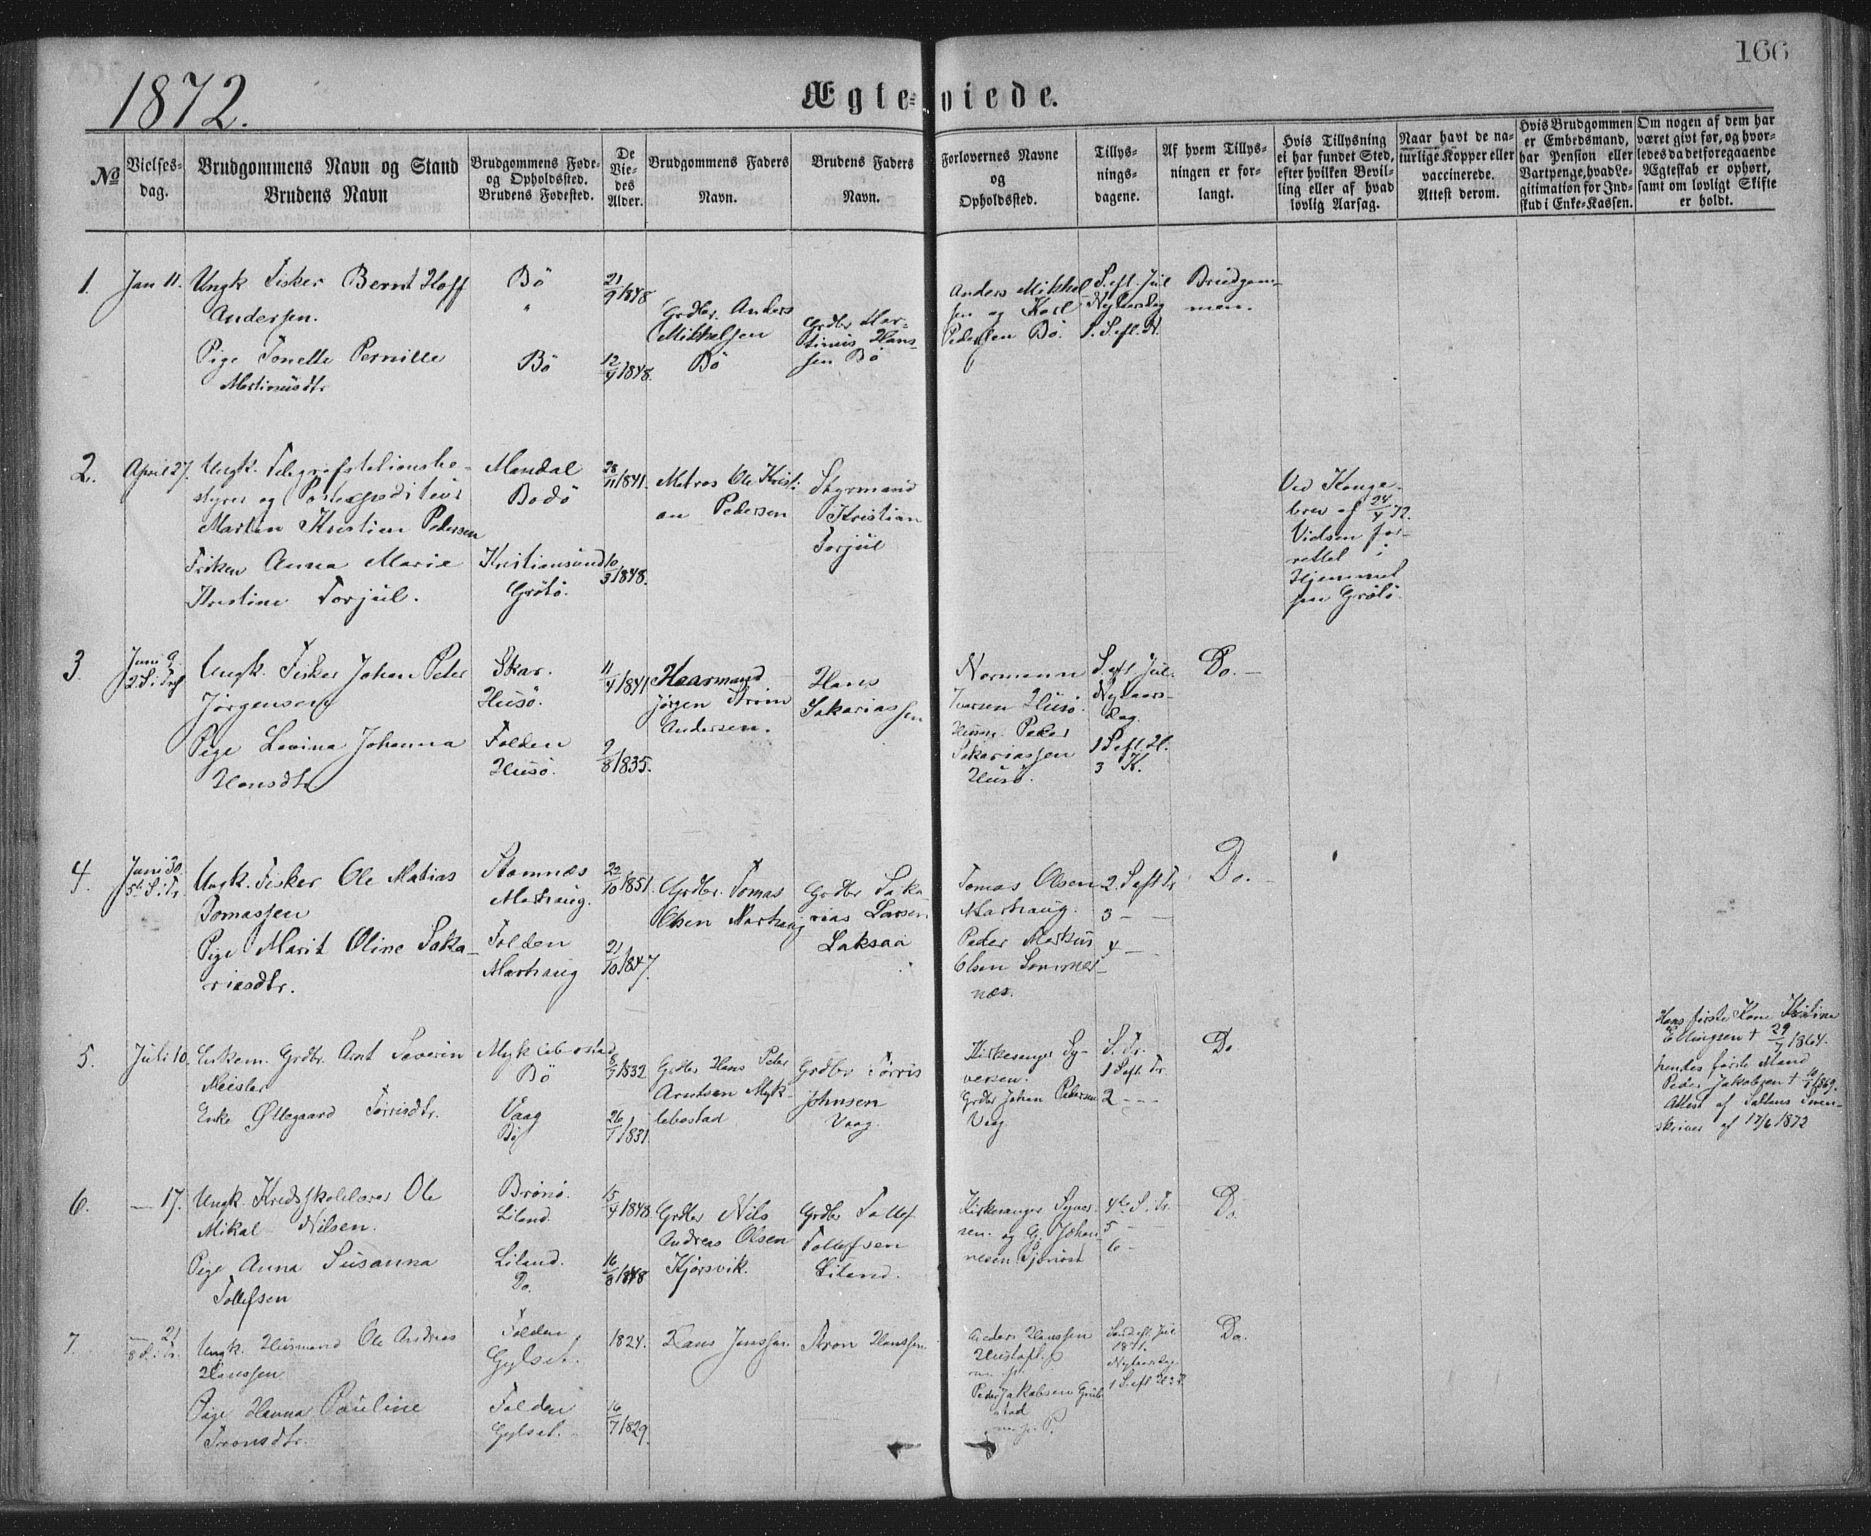 166
1872.
Ægte=viede.
No
Vielses-
dag.
Brudgommens Navn og Stand
Brudens Navn
Brudgommens Føde-
og Opholdssted.
Brudens Fødested.
De
Vie-
des
Alder.
Brudgommens Faders
Navn.
Brudens Faders
Navn.
Forlovernes Navne
og
Opholdssted.
Tillys-
nings-
dagene.
Af hvem Tillys-
ningen er for-
langt.
Hvis Tillysning
ei har fundet Sted,
efter hvilken Bevil-
ling eller af hvad
lovlig Aarsag.
Naar havt de na-
turlige Kopper eller
vaccinerede.
Attest derom.
Hvis Brudgommen
er Embedsmand,
har Pension eller
Vartpenge, hvad Le-
gitimation for Ind-
skud i Enke-Kassen.
Om nogen af dem har
været givt før, og hvor-
ledes da det foregaaende
Ægteskab er ophørt,
samt om lovligt Skifte
er holdt.
1.
Jan 11.
Ungk Fisker Bernt Hoff
Andersen.
Pige Tonette Pernille
Martinusdtr
Bö
"
Bö
21/9 1848
12/9 1848.
Grdbr. Anders
Mikkelsen
Bö
Grdbr Mar-
tinus Hans-
sen Bö
Anders Mikkel-
sen og Karl
Pedersen Bö.
S. eft. Jul
Nytaarsdag
1. S. eft. N.
Brudgom-
men.
2.
April 27.
Ungk. Telegrafstationsbe-
styrer og Postexpeditör
Martin Kristian Pedersen
Fröken Anna Marie
Kristine Torjul.
Mandal
Bodö
Kristiansund
Grötö.
28/11 1841.
10/3 1848.
Matros Ole Kristi-
an Pedersen
Styrmand
Kristian
Torjul
Ved Konge-
brev af 24/4 72.
Vielsen for-
rettet i
Hjemmet
paa Grötö.
3
Juni 9.
2 S. e. Tref
Ungk. Fisker Johan Peter
Jörgensen
Pige Lovina Johanna
Hansdtr
Skar.
Husö.
Folden
Husö.
11/4 1841
2/8 1835.
Kaarmand
Jörgen Arnin
Andersen.
Hans
Sakariassen
Normann
Iversen Husö.
Husm. Peder
Sakariassen
Husö.
S. eft Jul.
Nytaars-
dag.
1 S eft. H.
3 K.
Do. -
4.
Juni 30
5t. S. Tr.
Ungk. Fisker Ole Matias
Tomassen
Pige Marit Oline Saka-
riasdtr.
Stamnæs
Marhaug.
Folden
Marhaug
22/10 1851.
21/10 1847.
Grdbr. Tomas
Olsen Marhaug
Grdbr Saka-
rias Larsen
Laksaa
Tomas Olsen
Marhaug.
Peder Markus
Olsen Sommer-
næs.
2. S eft Tr
3 - -
4 - -
Do. -
5.
Juli 10.
Enkem. Grdbr. Arnt Severin
Meisler
Enke Øllegaard Törrisdtr.
Myklebostad
Bö
Vaag
Bö
8/9 1832.
26/1 1831.
Grdbr Hans Peter
Arntsen Myk-
lebostad
Grdbr Törris
Johnsen
Vaag.
Kirkesanger Sy-
versen.
Grdbr Johan Petersen
Vaag.
S. Tr.
1 S eft. Tr.
2 - - -
Do
Hans förste Kone Kristina
Ellingsen † 29/7 1864.
hendes förste Mand
Peder Jakobsen † 1869.
Attest af Saltens Soren-
skriver af 17/6 1872
6.
- 17.
Ungk. Kredsskolelærer Ole
Mikal Nilsen.
Pige Anna Susanna
Tollefsen
Brönö.
Liland.
Liland.
Do.
15/4 1848.
16/8 1848
Grdbr Nils
Andreas Olsen
Kjörsvik.
Grdbr Tollef
Tollefsen
Liland.
Kirkesanger Syver-
sen. og G. Johan-
nesen
4de S. e. Tr.
5 - -
6 -
Do.
7.
- 21
8 S. e. Tr.
Ungk. Husmand Ole Andreas
Hanssen
Pige Hanna Pauline
Aronsdtr.
Folden
Gylset.
Folden
Gylset.
1824.
16/7 1829.
Hans Jenssen.
Aron Hanssen.
Anders Hanssen
Peder Jakobsen
stad
m. p. P.
S. eft. Jul
1871.
Nytaarsdag
1 S. eft H3K.
Do.